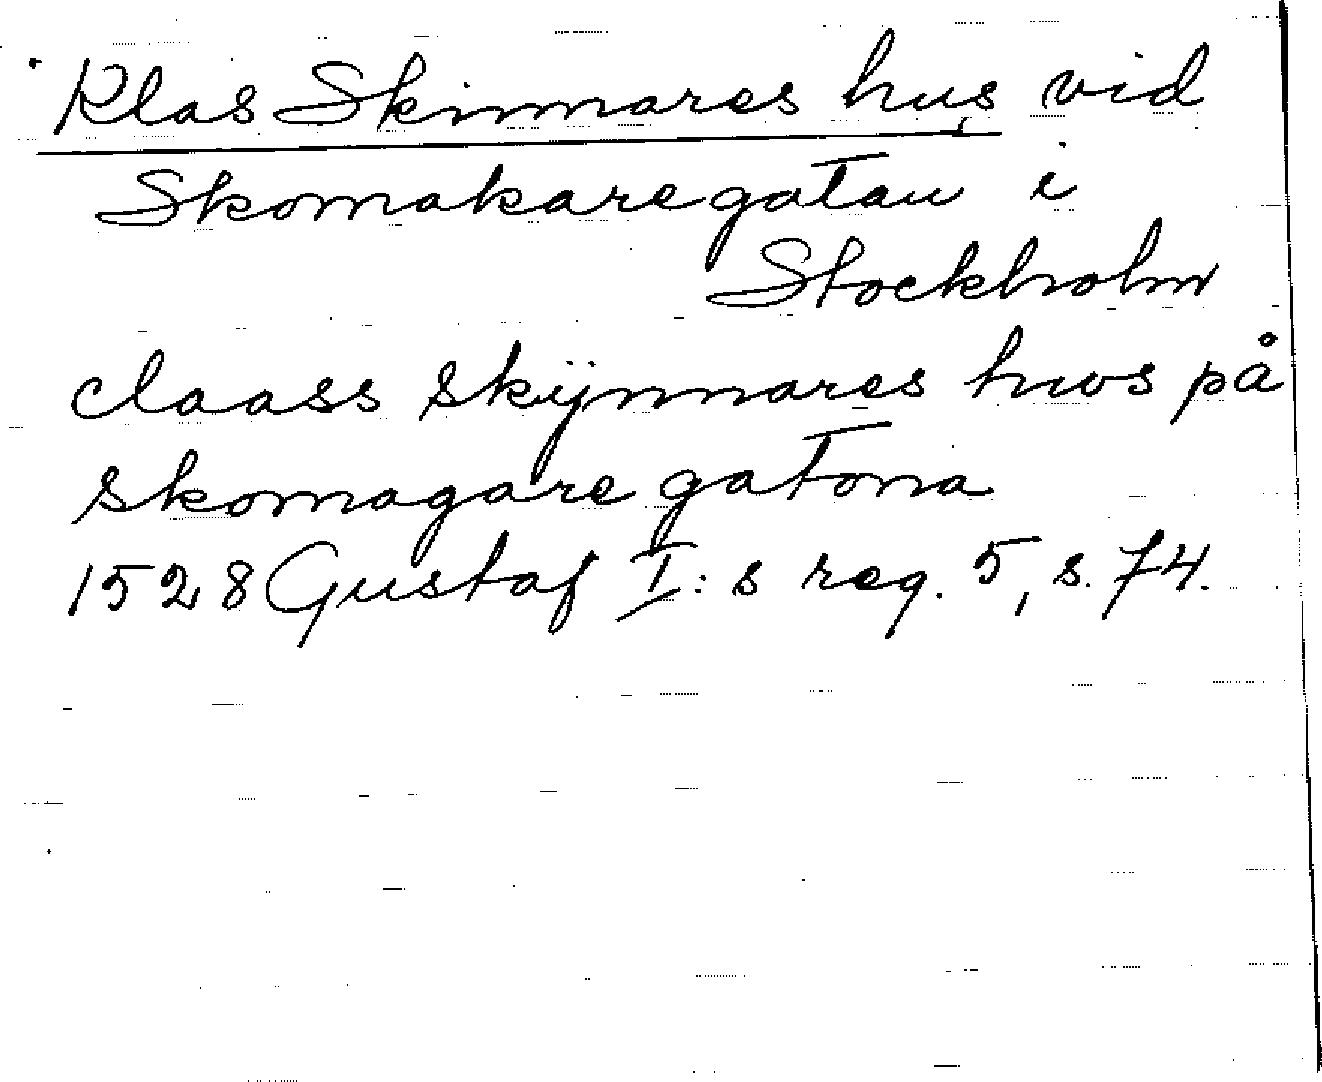 Klas Skinnares hus vid
Skomakaregatan i
Stockholm
claass skÿnnares hws på
skomagare gatona
1528 Gustaf I:s reg. 5, s. 74.